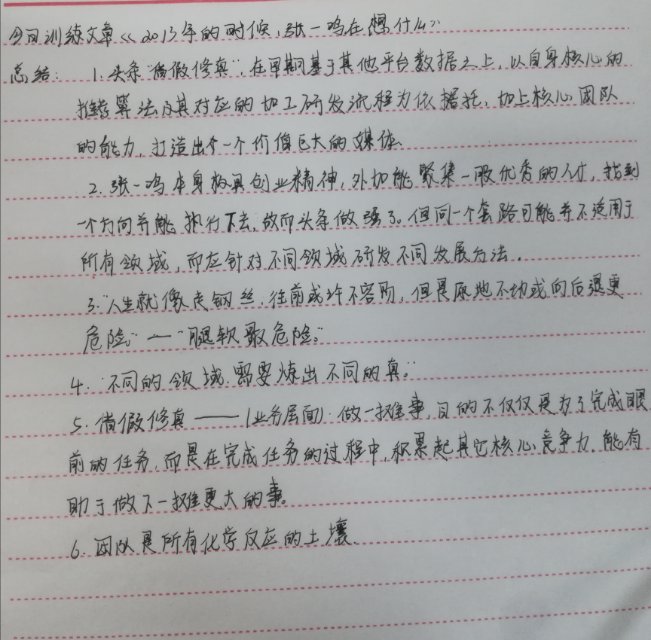 今日训练文章《2013年的时候,张一鸣在想什么》
总结: 1.头条"借假修真",在早期基于其他平台数据之上,以自身核心的
推荐算法及其对应的加工研发流程为依据托,加上核心团队
的能力,打造出个一个价值巨大的媒体
2.张一鸣本身极具创业精神,外加能聚集一般优秀的人付,找到
一个方向并能执行下去,故而头条做强了。但同一个套路可能并不适用于
所有领域,而应针对不同领域研发不同发展方法。
3."人生就像走钢丝,往前或许不容易,但是原地不动或向后退更
危险。"—"腿软最危险。"
4."不同的领域,需要炼出不同的真。"
5.借假修真——(业务层面):做一摊事,目的不仅仅是为了完成眼
前的任务,而是在完成任务的过程中,积累起其它核心竞争力,能有
助于做下一摊更大的事。
6.团队是所有化学反应的土壤.